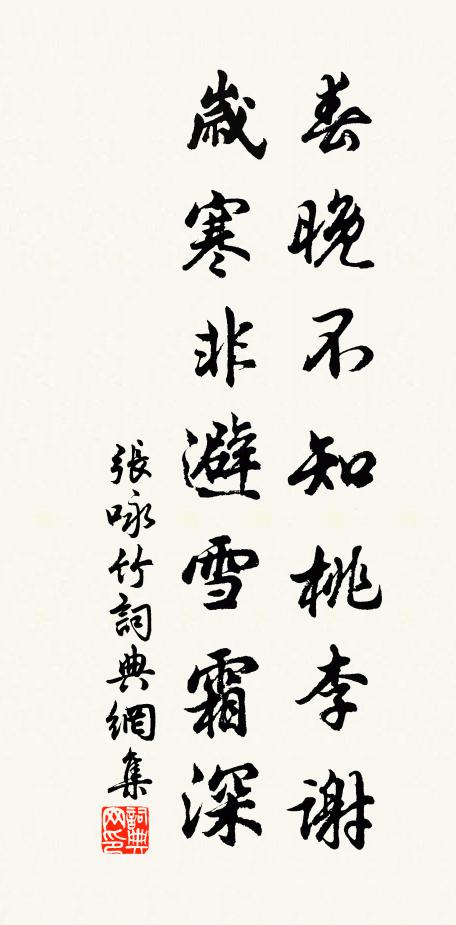 春晚不知桃李謝
歲寒非避雪霜深
張咏竹詞典網集
詞典
网印